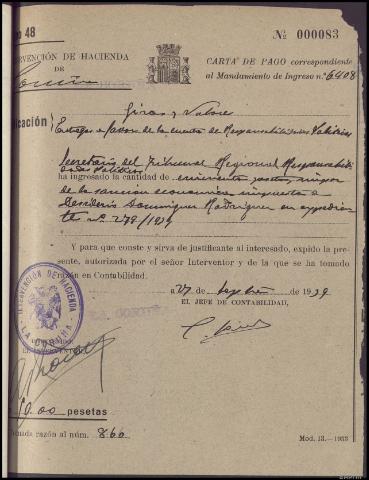 Nº 000083
48
RVENCIÓN DE HACIENDA
DE
CARTA DE PAGO correspondiente
al Mandamiento de Ingreso n.º 6408
Giros y Valores
icación
Entregas a favor de la cuenta de Responsabilidades Políticas
Secretario del Tribunal Regional Responsabili
dades Políticas
ha ingresado la cantidad de cincuenta pesetas, importe
de la sanción económica impuesta a
Desiderio Dominguez Rodriguez en expedien
te nº 279/1939
Y para que conste y sirva de justificante al interesado, expido la pre-
sente, autorizada por el señor Interventor y de la que se ha tomado
razón en Contabilidad.
a 27 de de 1939
EL JEFE DE CONTABILIDAD,
INTERVENCIÓN DE HACIENDA
LA CORUÑA
LA CORUÑA
EL INTERVENTOR
0.00 pesetas
omada razón al núm. 860
Mod. 13.-1933